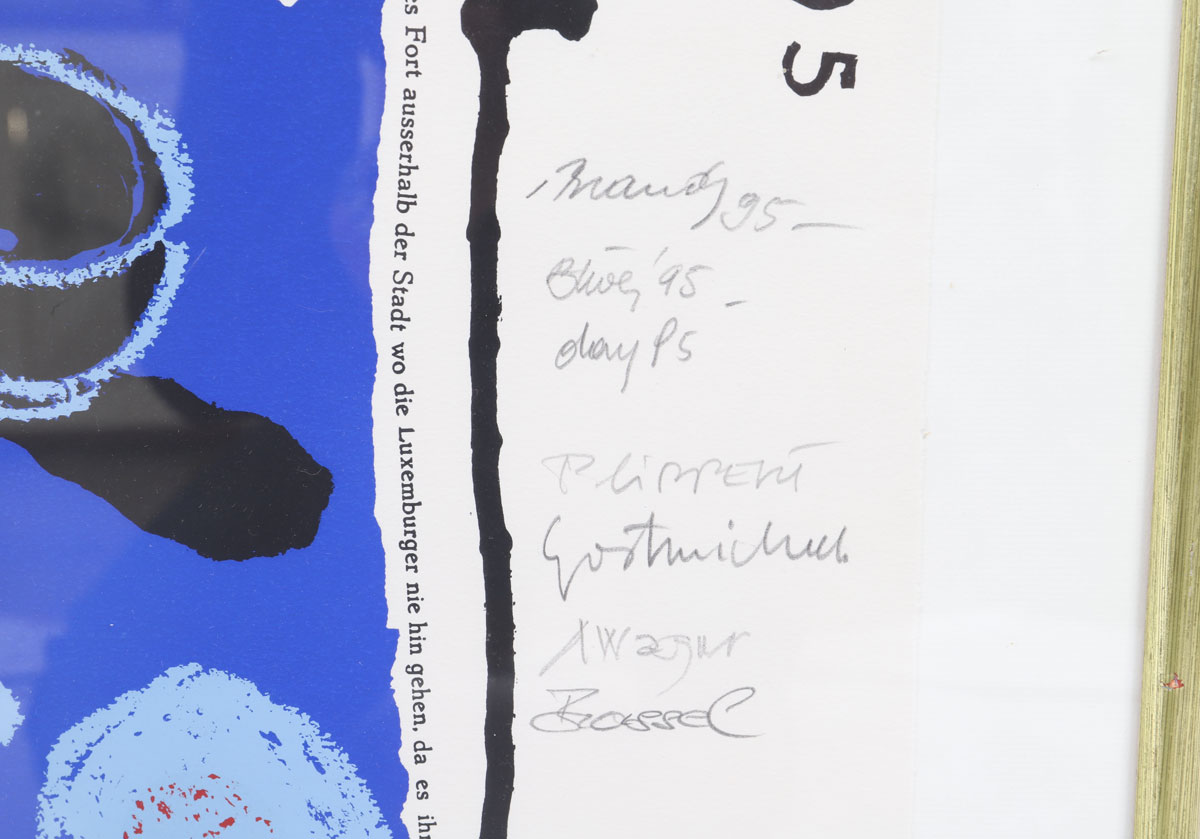 es Fort ausserhalb der Stadt wo die Luxemburger nie hin gehen, da es ihr
5
Brandy 95
'95
day 95
Lippert
Gostmichel
Wagner
Brassel